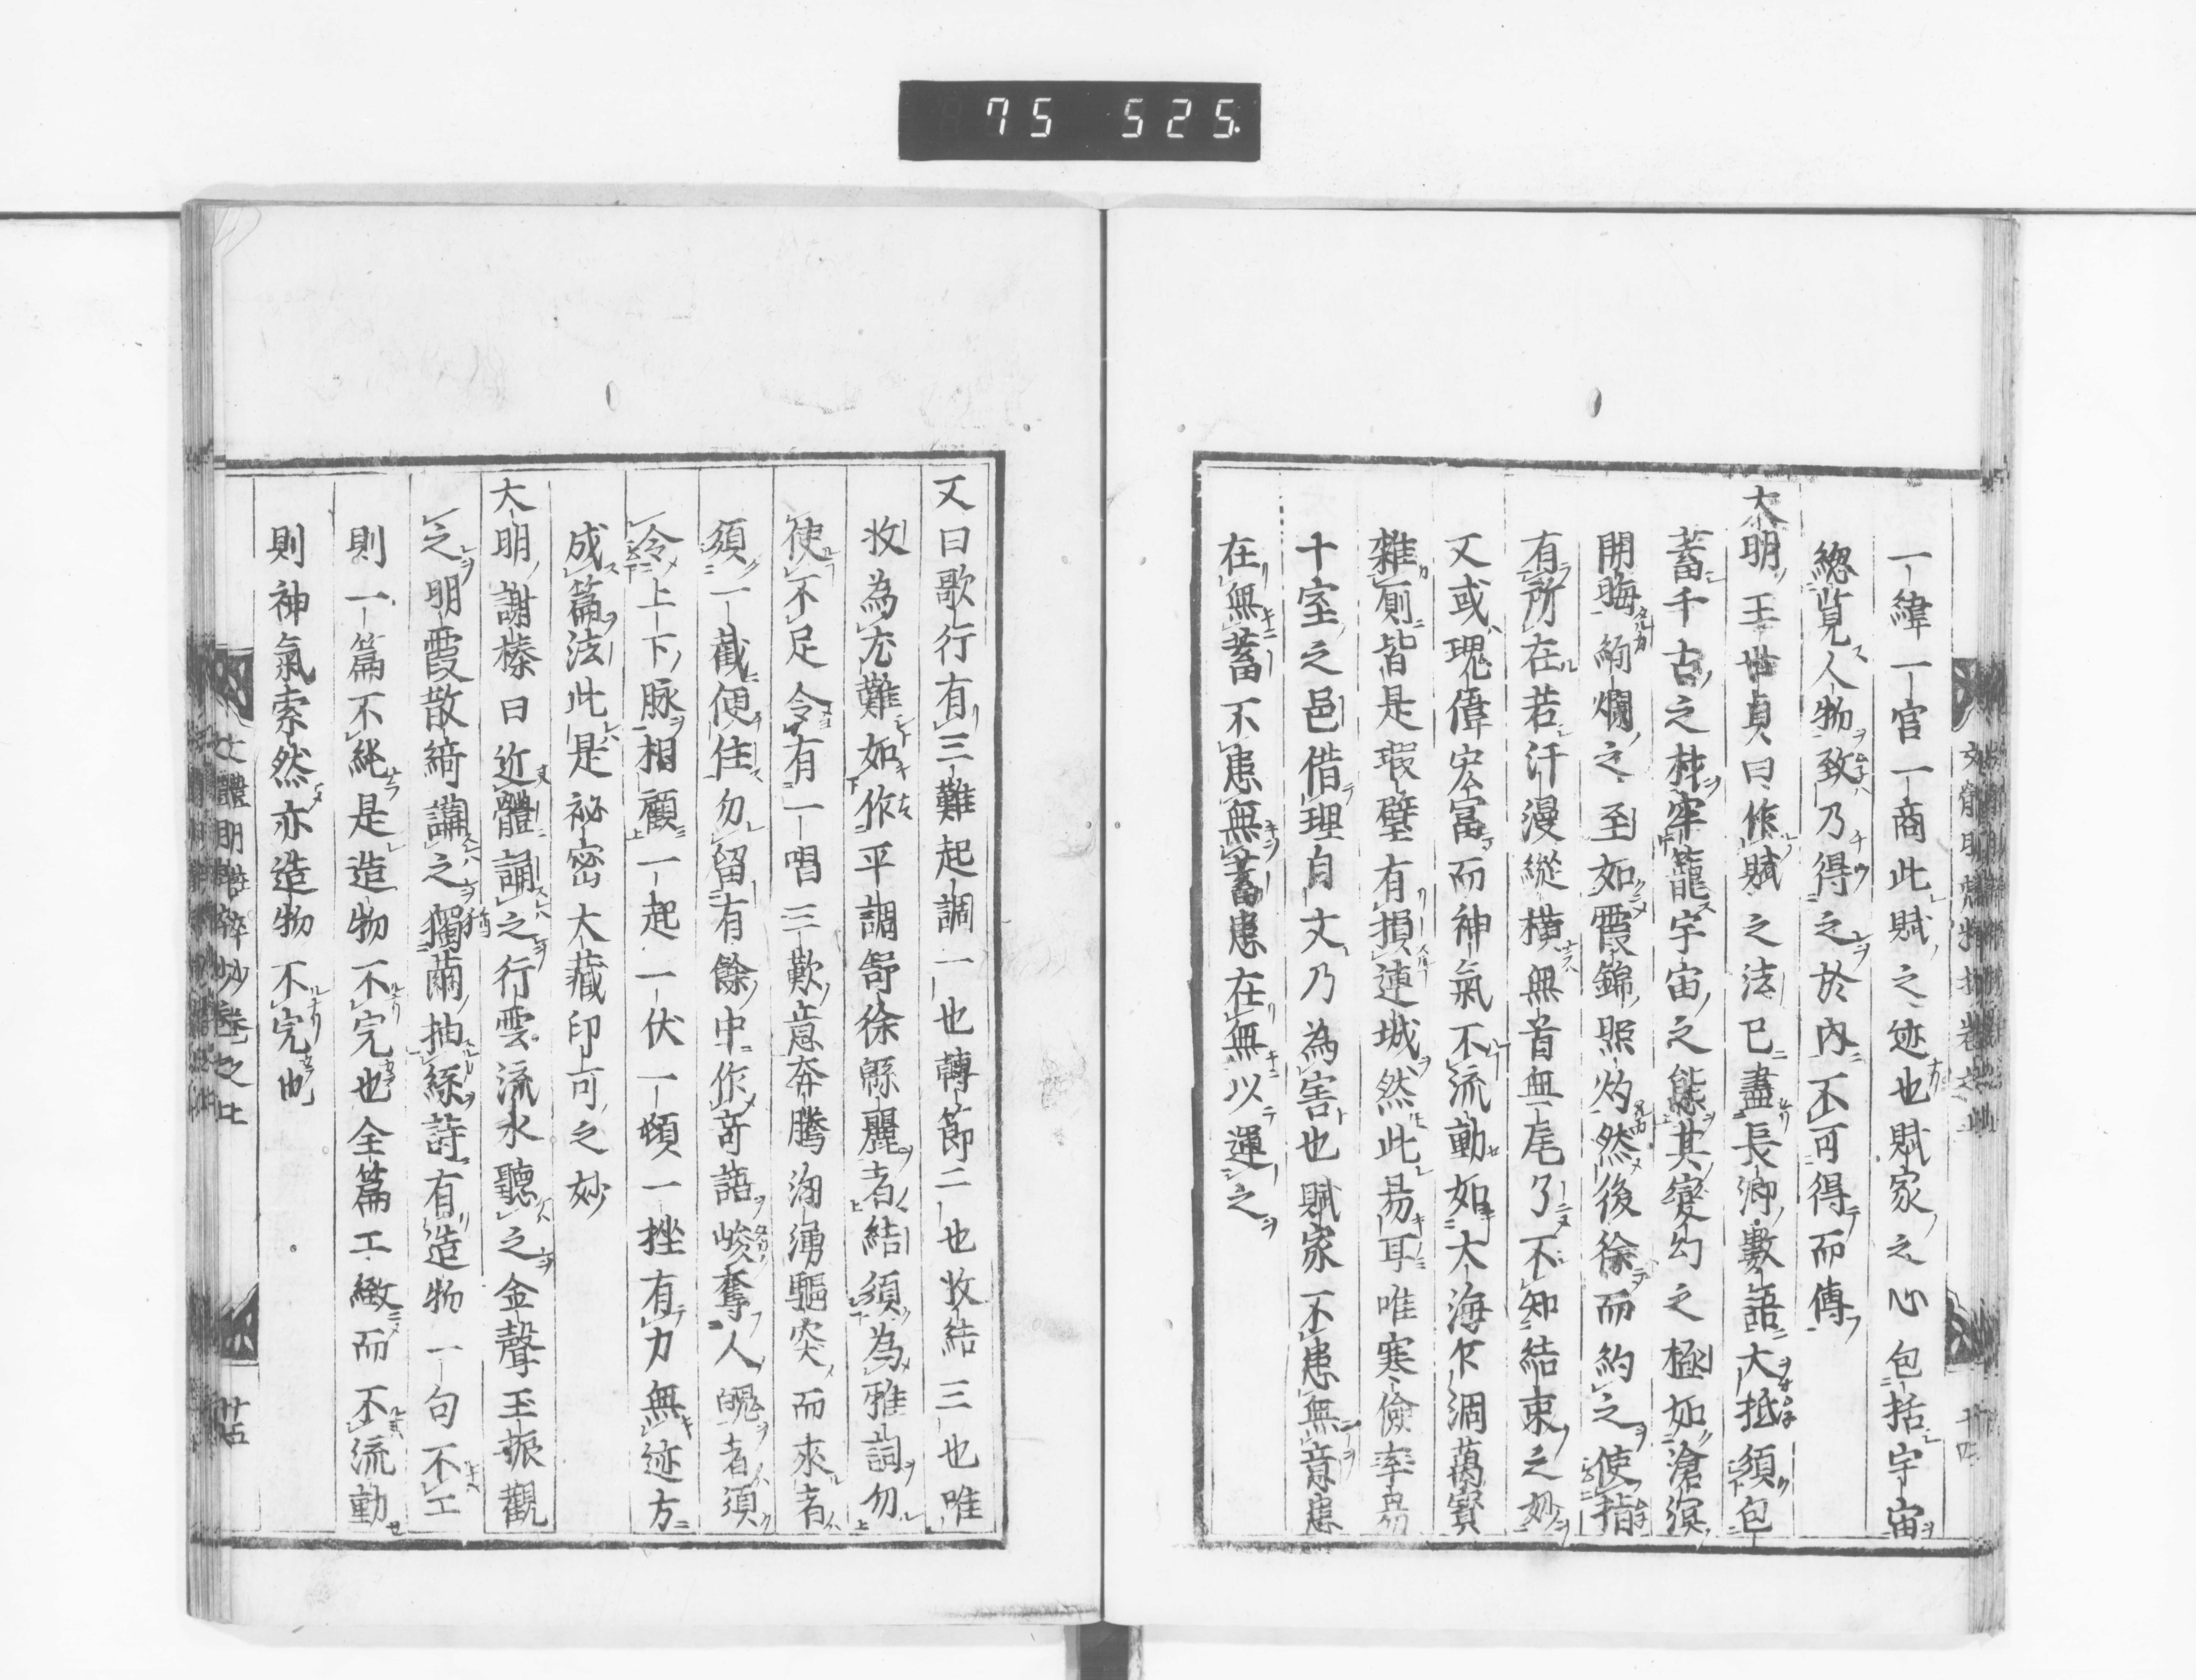 75 525.
一緯一宮一商此賦之迹也賦家之心包括宇宙
緫覧人物致乃得之於內不可得而傳
大明王世貞曰作賦之法已盡長卿數語大抵須包
蓄千古之材牢籠宇宙之態其變幻之極如滄溟
開晦絢爛之至如霞錦照灼然後徐而約之使指
有所在若汗漫縱橫無首無尾了不知結束之妙
又或瑰偉宏富而神氣不流動如大海乍涸萬寶
雜厠皆是瑕璧有損連城然此易耳唯寒儉率易
十室之邑借理自文乃為害也賦家不患無意患
在無蓄不患無蓄患在無以運之
又曰歌行有三難起調一也轉節二也收結三也唯
收為尤難如作平調舒徐緜麗者結須為雅詞勿
使不足令有一唱三歎意奔騰洶湧驅突而來者
須一截便住勿留有餘中作奇語峻奪人魄者須
令上下脉相顧一起一伏一頓一挫有力無迹方
成篇法此是祕密大藏印可之妙
大明謝榛曰近體誦之行雲流水聽之金聲玉振觀
之明霞散綺講之獨繭抽絲詩有造物一句不工
則一篇不純是造物不完也全篇工緻而不流動
則神氣索然亦造物不完也